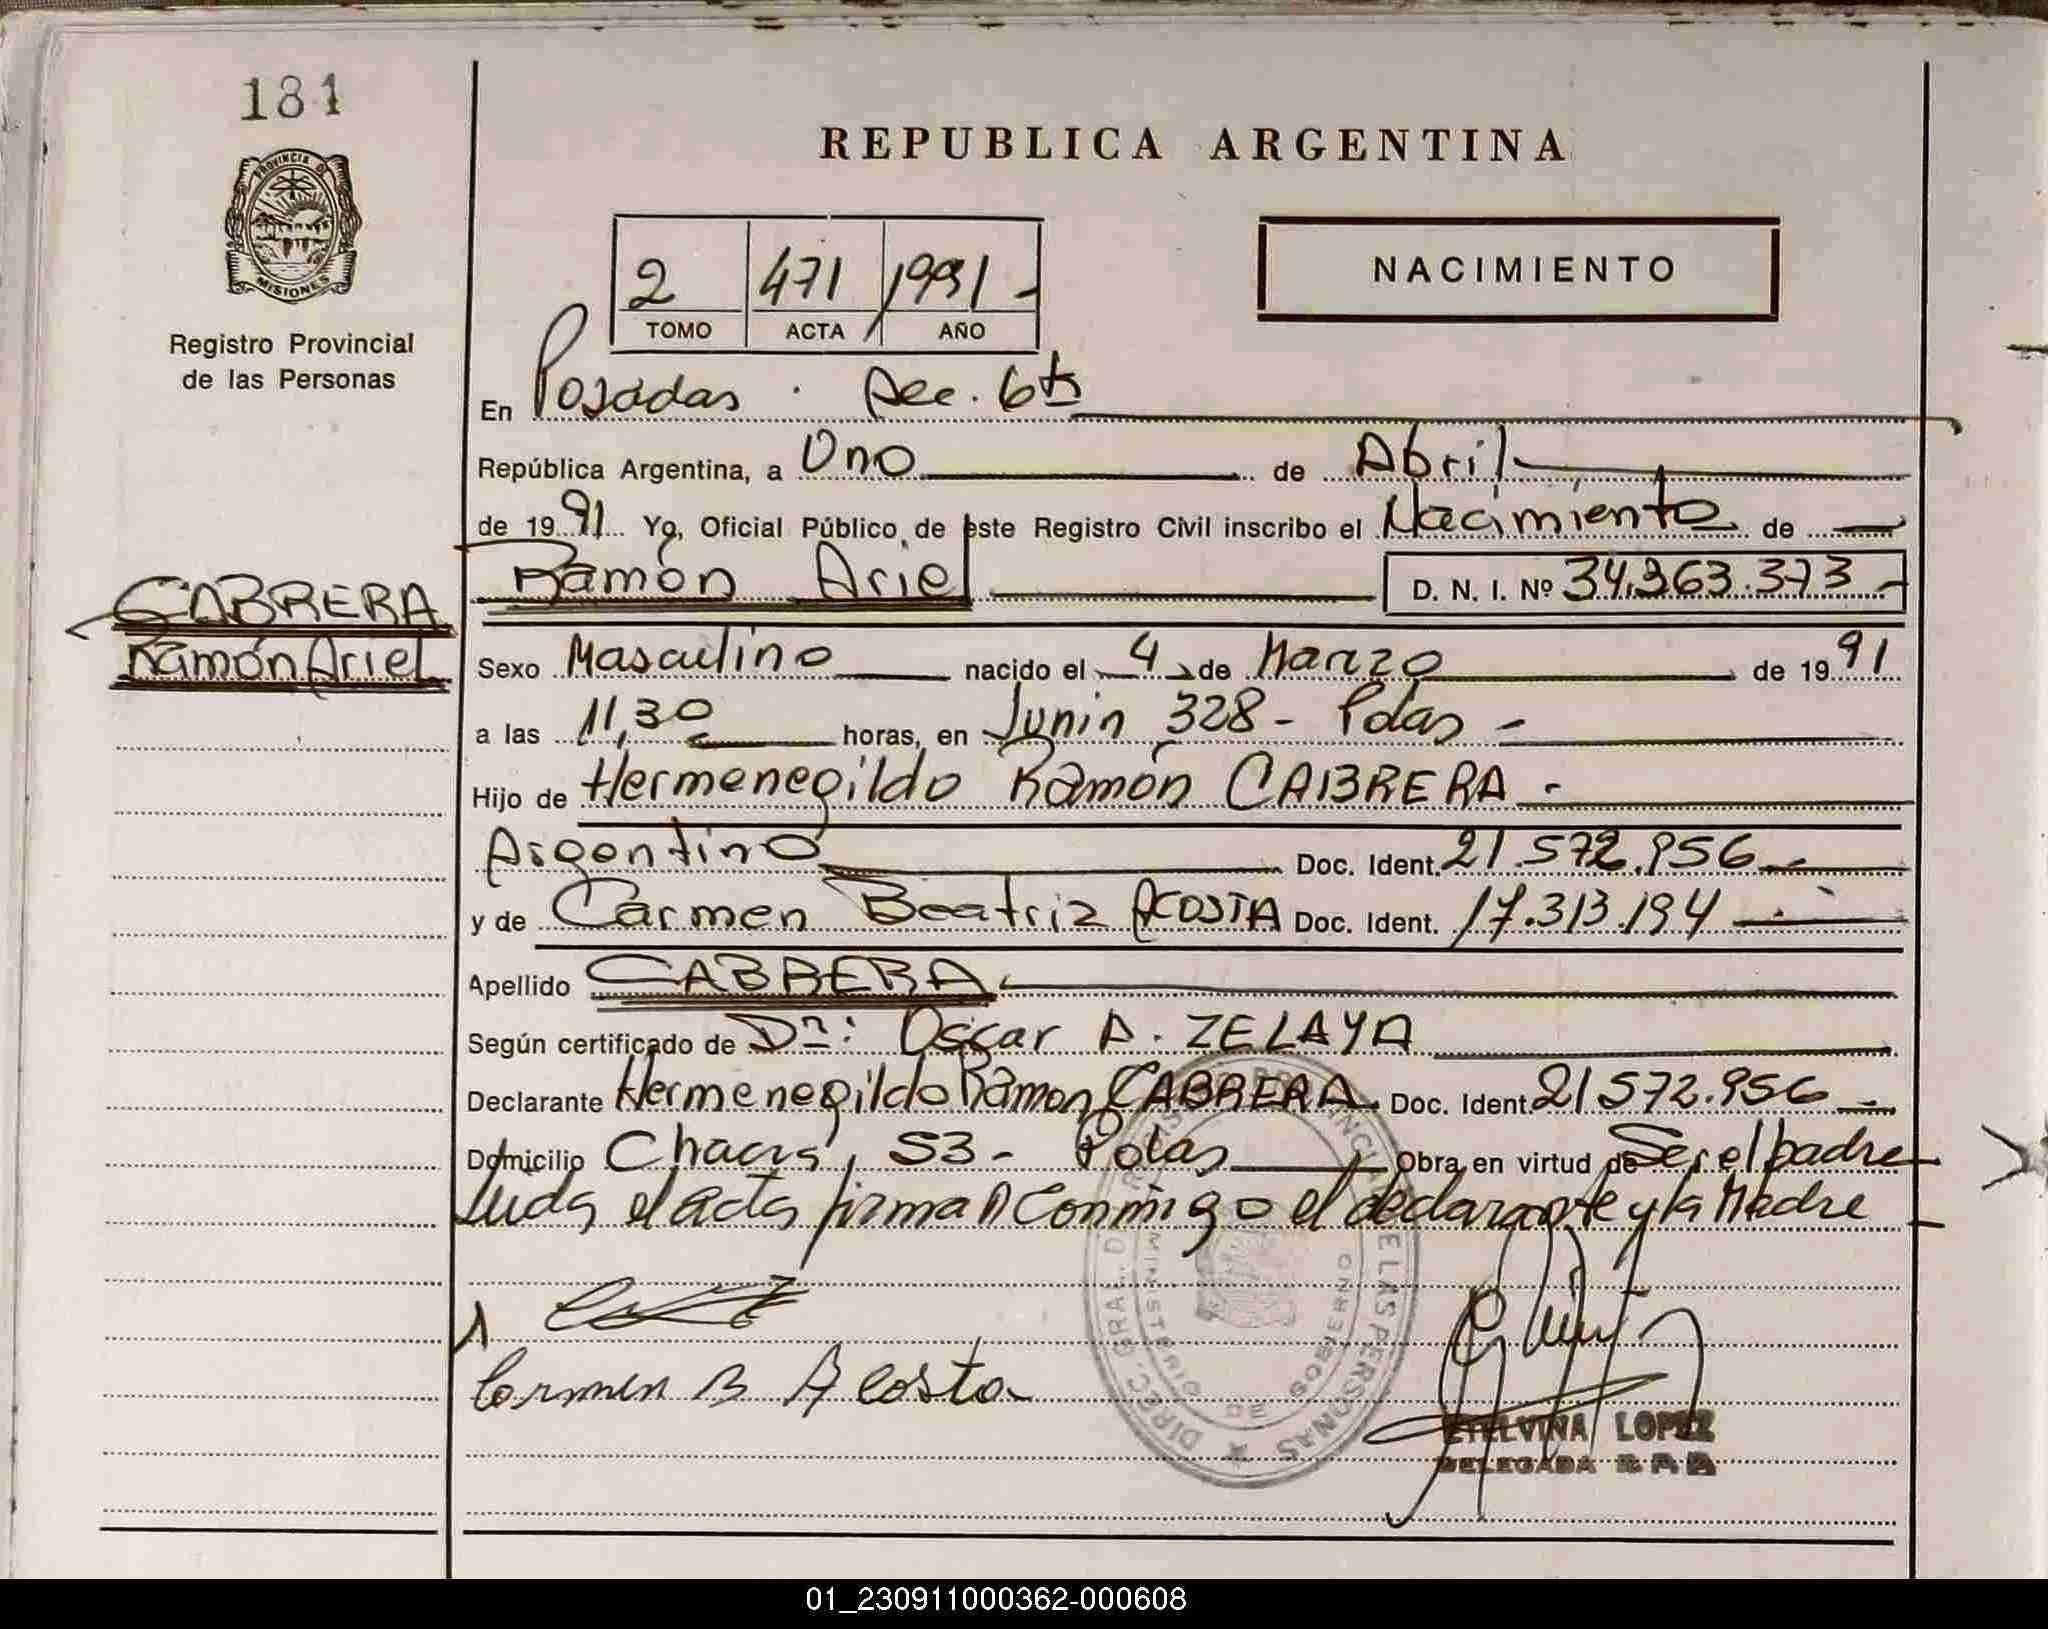 181
REPUBLICA ARGENTINA
PROVINCIA DE
MISIONES
Registro Provincial
de las Personas
2 471 1991 -
TOMO ACTA AÑO
NACIMIENTO
En Posadas. Sec. 6ta
República Argentina, a Uno de Abril
de 1991 Yo, Oficial Público de este Registro Civil inscribo el Nacimiento de
CABRERA
Ramón Ariel
Ramón Ariel D. N. I. Nº 34.363.373 -
Sexo Masculino nacido el 4 de Marzo de 1991
a las 11,30 horas, en Junin 328 - Pdas -
Hijo de Hermenegildo Ramón CABRERA -
Argentino Doc. Ident. 21.572.956
y de Carmen Beatriz ACOSTA Doc. Ident. 17.313.194
Apellido CABRERA
Según certificado de Dr: Oscar A. ZELAYA
Declarante Hermenegildo Ramon CABRERA. Doc. Ident. 21572.956
Domicilio Chacra, 53 - Pdas Obra en virtud de Ser el padre
Leida el acta firman Conmigo el declarante y la Madre
Carmen B Acosta
DIREC. GRAL. DEL REGISTRO PROVINCIAL DE LAS PERSONAS
MINISTERIO DE GOBIERNO
ETELVINA LOPEZ
DELEGADA R.P.P.
01_230911000362-000608